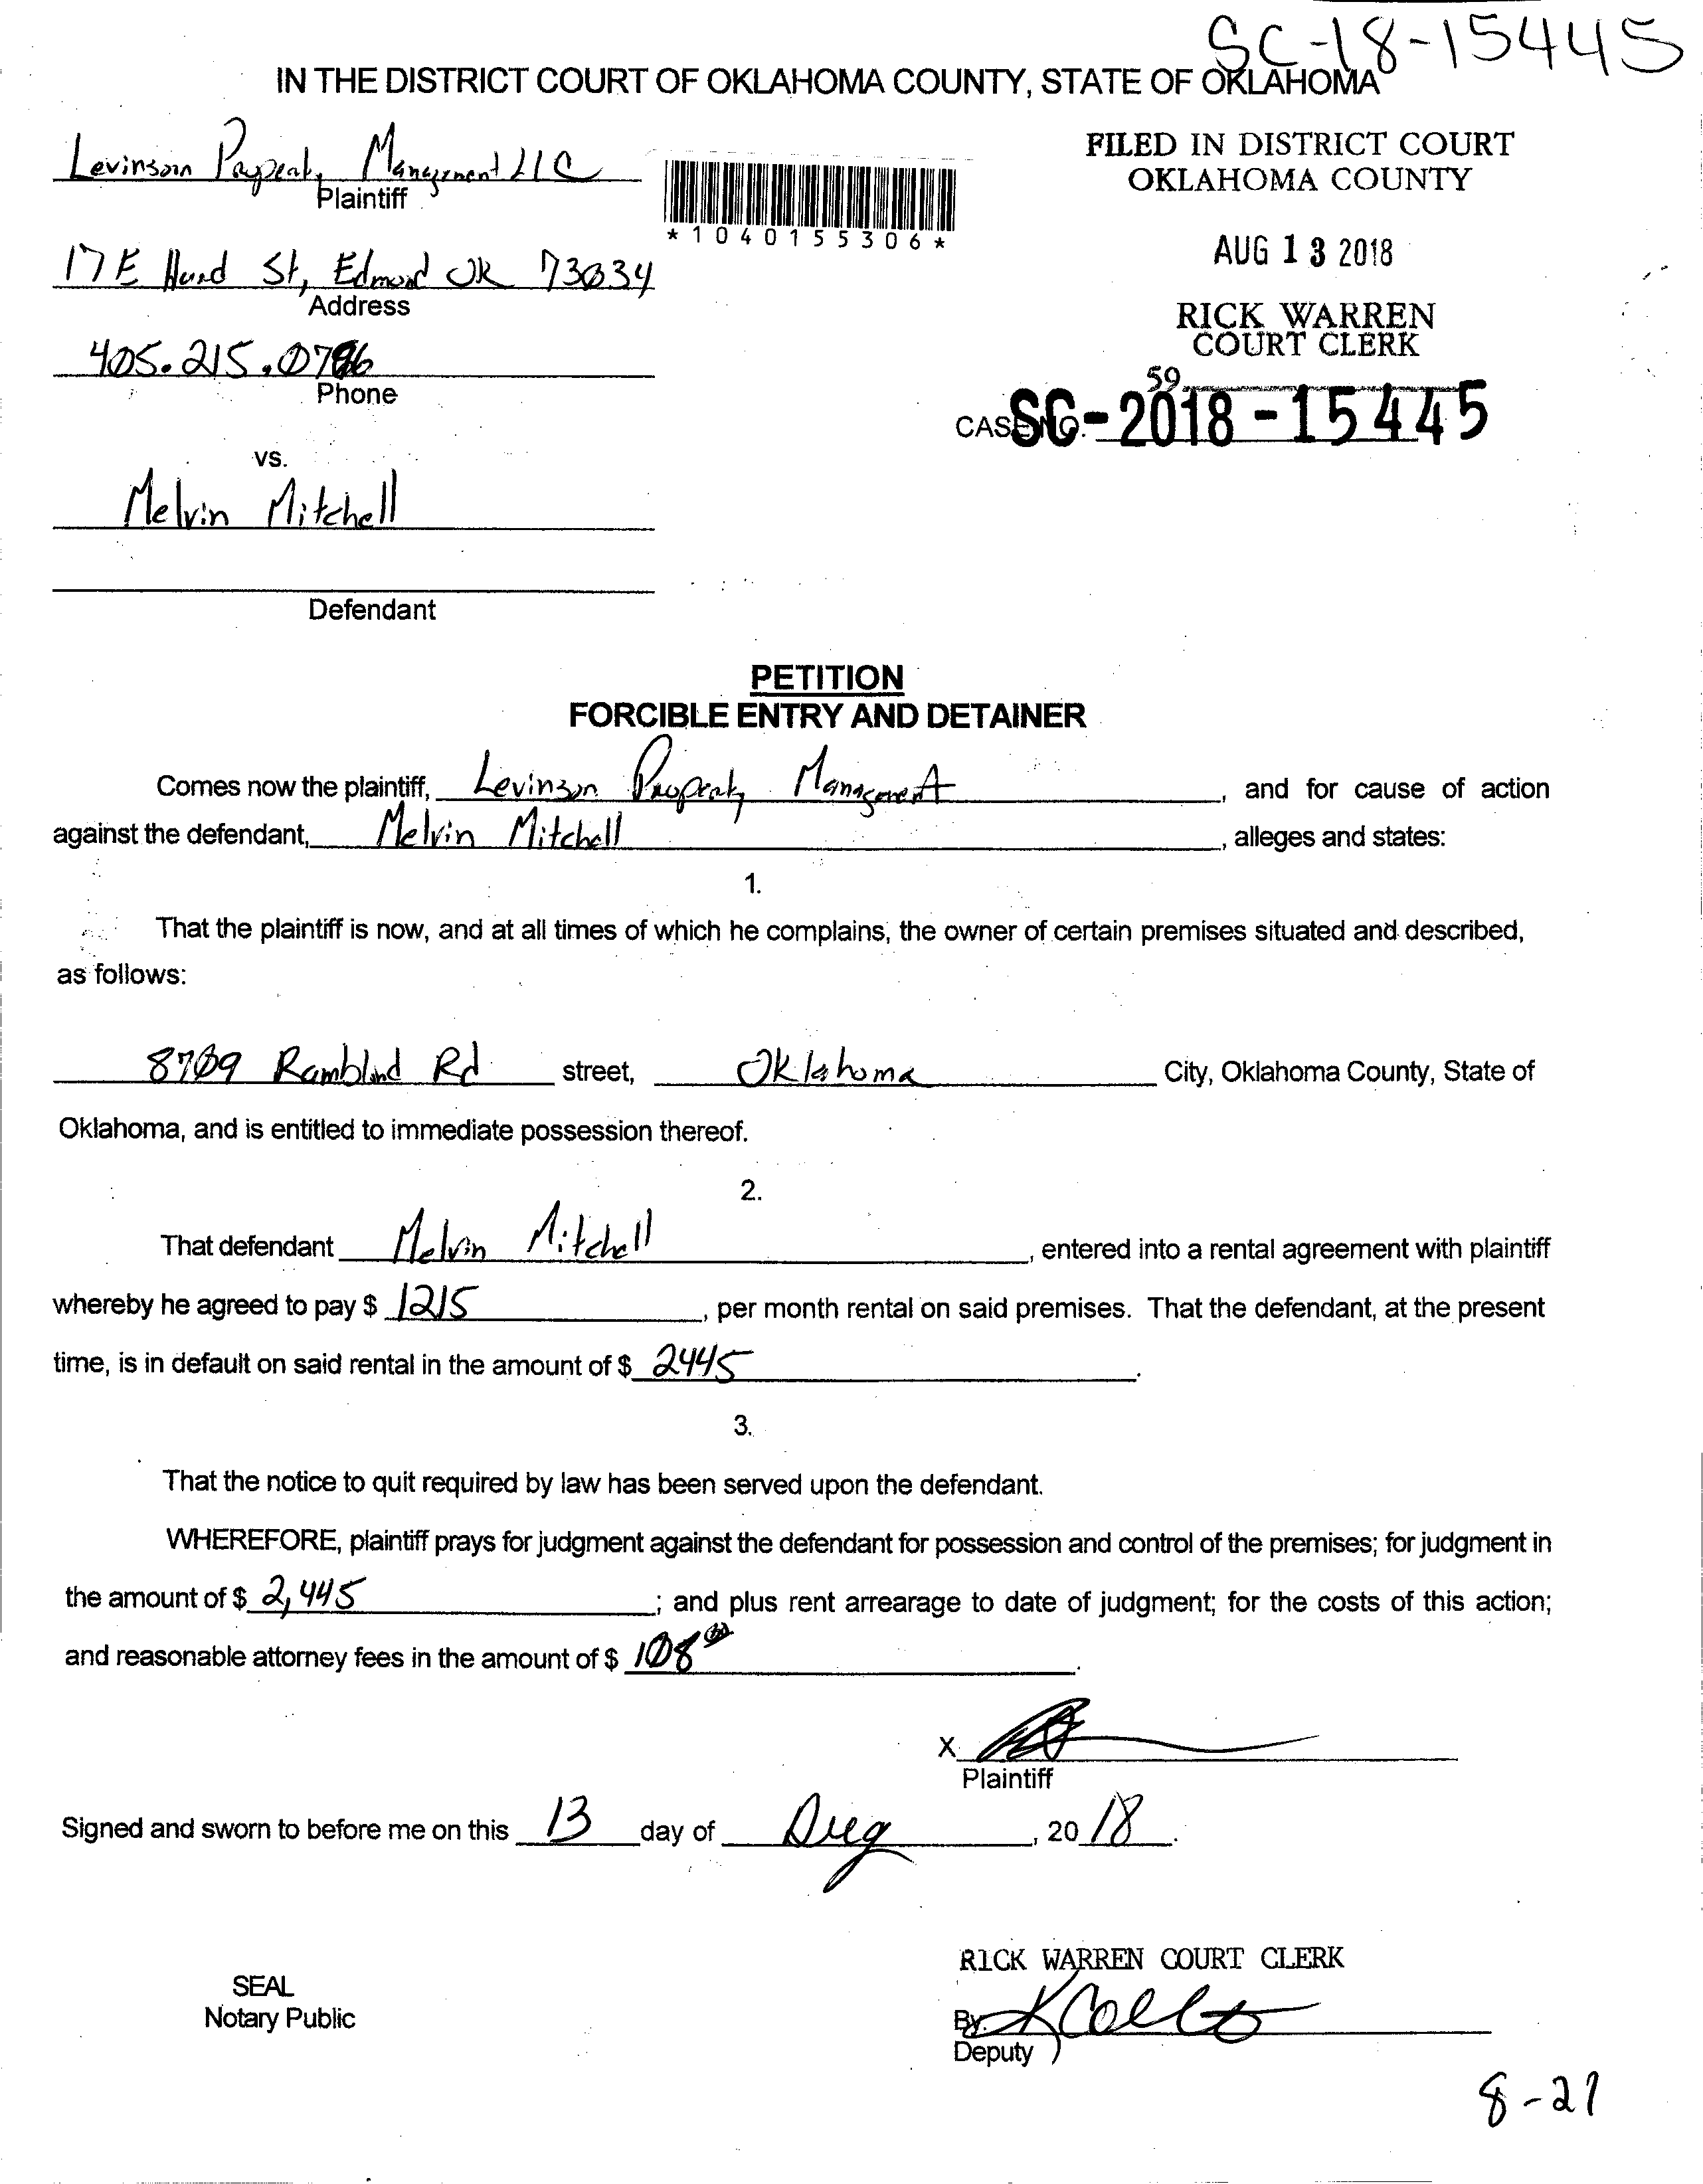 SC-18-15445
IN THE DISTRICT COURT OF OKLAHOMA COUNTY, STATE OF OKLAHOMA
Levinson Property Management LLC
Plaintiff
17 E Hurd St, Edmond OK 73034
Address
405.215.0786
Phone
*1040155306*
FILED IN DISTRICT COURT
OKLAHOMA COUNTY
AUG 13 2018
RICK WARREN
COURT CLERK
59
CASE NO. SC-2018-15445
vs.
Melvin Mitchell
Defendant
PETITION
FORCIBLE ENTRY AND DETAINER
Comes now the plaintiff, Levinson Property Management, and for cause of action
against the defendant, Melvin Mitchell, alleges and states:
1.
That the plaintiff is now, and at all times of which he complains, the owner of certain premises situated and described,
as follows:
8709 Rambland Rd street, Oklahoma City, Oklahoma County, State of
Oklahoma, and is entitled to immediate possession thereof.
2.
That defendant Melvin Mitchell, entered into a rental agreement with plaintiff
whereby he agreed to pay $ 1215, per month rental on said premises. That the defendant, at the present
time, is in default on said rental in the amount of $ 2445.
3.
That the notice to quit required by law has been served upon the defendant.
WHEREFORE, plaintiff prays for judgment against the defendant for possession and control of the premises; for judgment in
the amount of $ 2,445; and plus rent arrearage to date of judgment; for the costs of this action;
and reasonable attorney fees in the amount of $ 108 00.
X
Plaintiff
Signed and sworn to before me on this 13 day of Aug, 20 18.
RICK WARREN COURT CLERK
SEAL
Notary Public
By:
Deputy
8-27